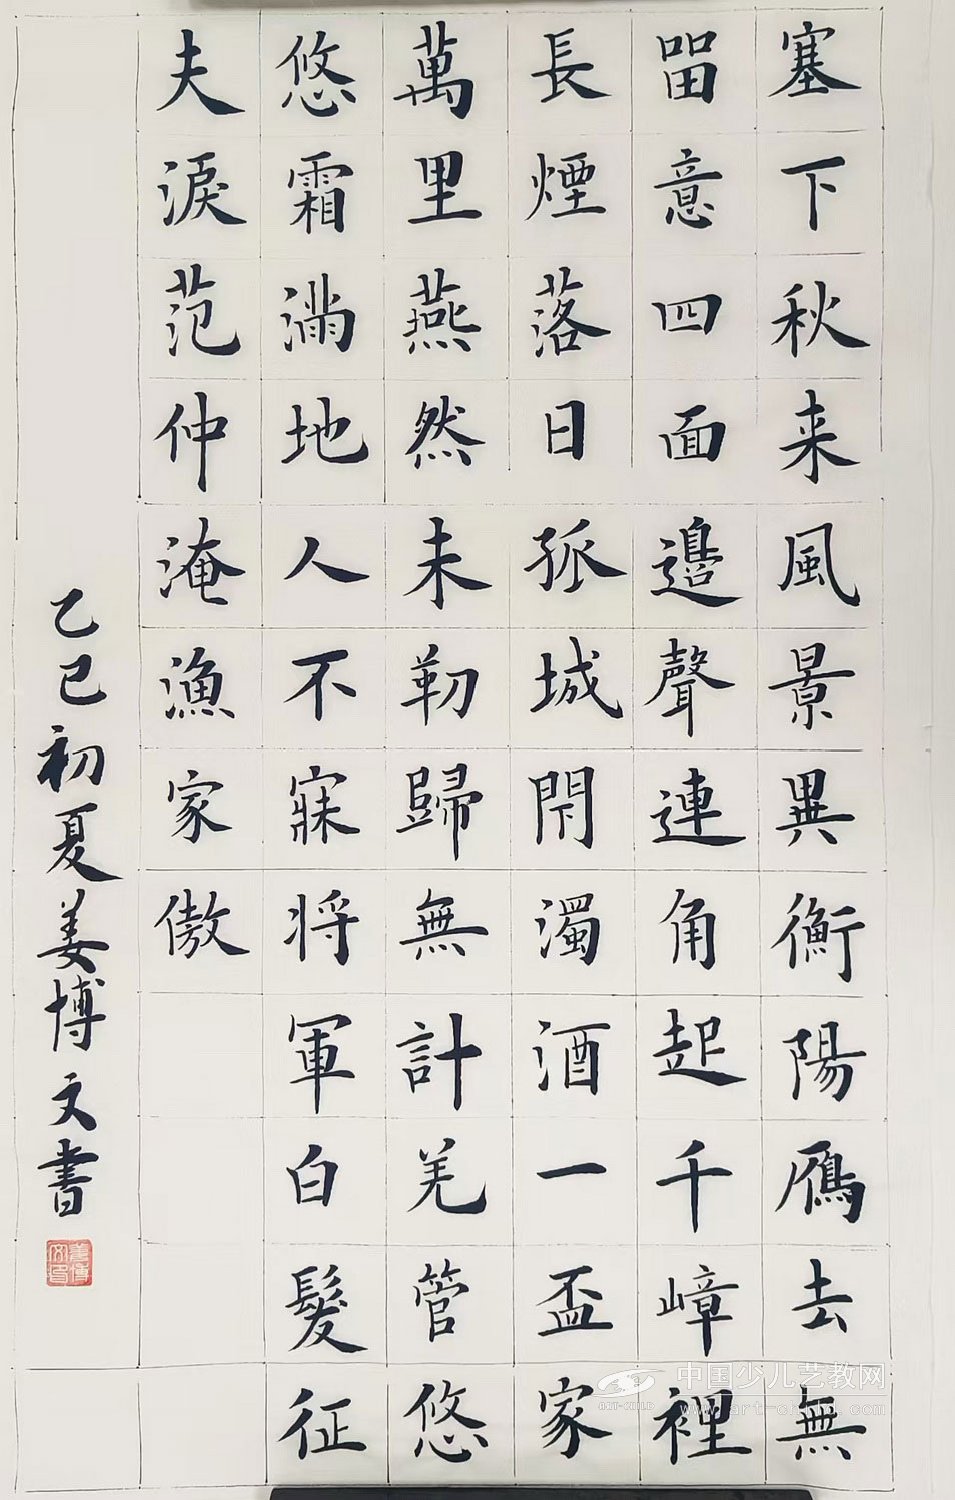 塞下秋来風景異衡陽鴈去無
畱意四面邊聲連角起千嶂裡
長煙落日孤城閇濁酒一盃家
萬里燕然未勒歸無計羌管悠
悠霜滿地人不寐将軍白髮征
夫淚范仲淹漁家傲
乙巳初夏姜博文書
中国少儿艺教网
ART-CHILD
www.art-child.com